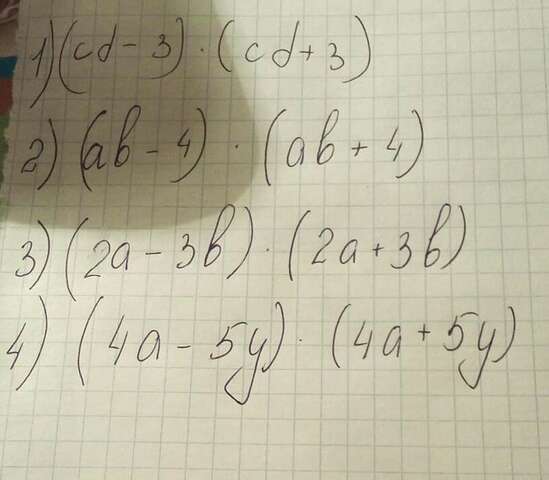 1) (cd - 3) · (cd + 3)
2) (ab - 4) · (ab + 4)
3) (2a - 3b) · (2a + 3b)
4) (4a - 5y) · (4a + 5y)